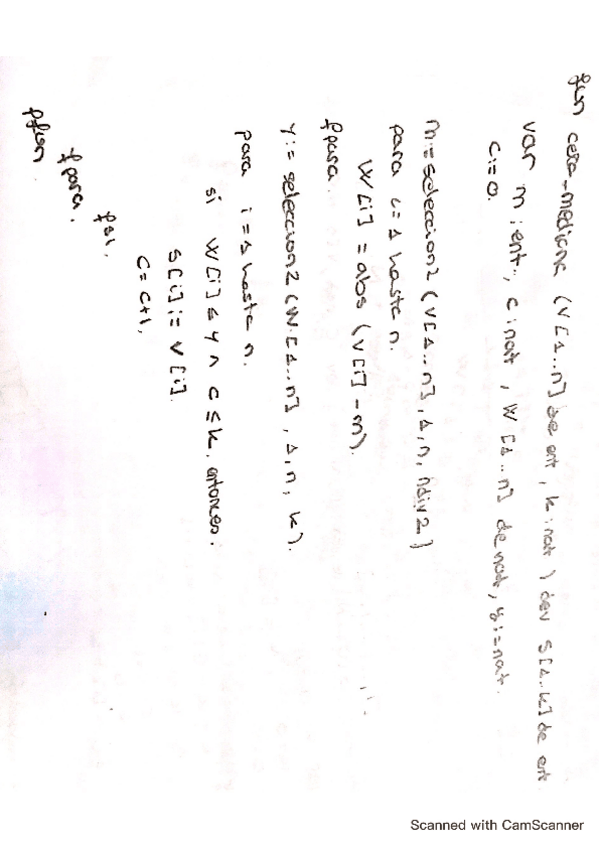 fun cerca_mediana (V[1..n] de ent, k:nat) dev S[1..k] de ent
var m:ent, c:nat, W[1..n] de nat, y:=nat.
c:=0.
m:=seleccion2 (V[1..n], 1, n, ndiv2)
para i=1 hasta n.
W[i] = abs (V[i] - m).
fpara.
y:= seleccion2 (W[1..n], 1, n, k).
para i=1 hasta n.
si W[i] ≤ y ∧ c ≤ k. entonces:
S[i]:= V[i].
c = c+1,
fsi,
fpara.
ffun.
Scanned with CamScanner